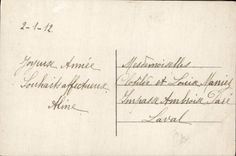 2-1-12
Joyeuse Année
Souhait affectueux
Aline
Mesdemoiselles
et Louise
Impasse Ambroise Paré
Laval